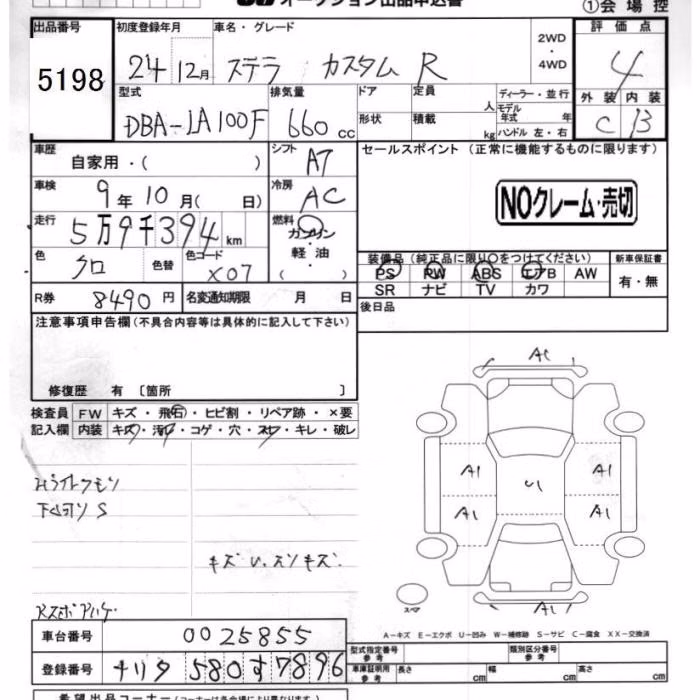 オークション出品申込書
①会場控
出品番号 初度登録年月 車名・グレード 2WD・4WD 評価点
5198 24 12月 ステラ カスタム R 4
型式 排気量 ドア 定員 人 ディーラー・並行 外装 内装
DBA-LA100F 660cc 形状 積載 kg モデル年式 年 ハンドル 左・右 C B
車歴 自家用・( ) シフト AT セールスポイント (正常に機能するものに限ります)
車検 9年10月( 日) 冷房 AC NOクレーム・売切
走行 5万9千394km 燃料 ガソリン 軽油 ( )
色 クロ 色替 色コード X07 装備品 (純正品に限り○をつけてください) 新車保証書
PS PW ABS エアB AW 有・無
SR ナビ TV カワ
R券 8490円 名変通知期限 月 日 後日品
注意事項申告欄 (不具合内容等は具体的に記入して下さい)
修復歴 有 〔箇所 〕
検査員 FW キズ・飛石・ヒビ割・リペア跡・×要
記入欄 内装 キズ・汚れ・コゲ・穴・スレ・キレ・破レ
A1
A1 U A1
A1 A1
A1
Hライトクモリ
下回リS
キズ U.スリキズ.
スペア
A-キズ E-エクボ U-凹み W-補修跡 S-サビ C-腐食 XX-交換済
車台番号 0025855 型式指定番号 参考 類別区分番号 参考
登録番号 ナリタ 580 す 7896 車庫証明用 参考 長さ cm 幅 cm 高さ cm
希望出品コーナー